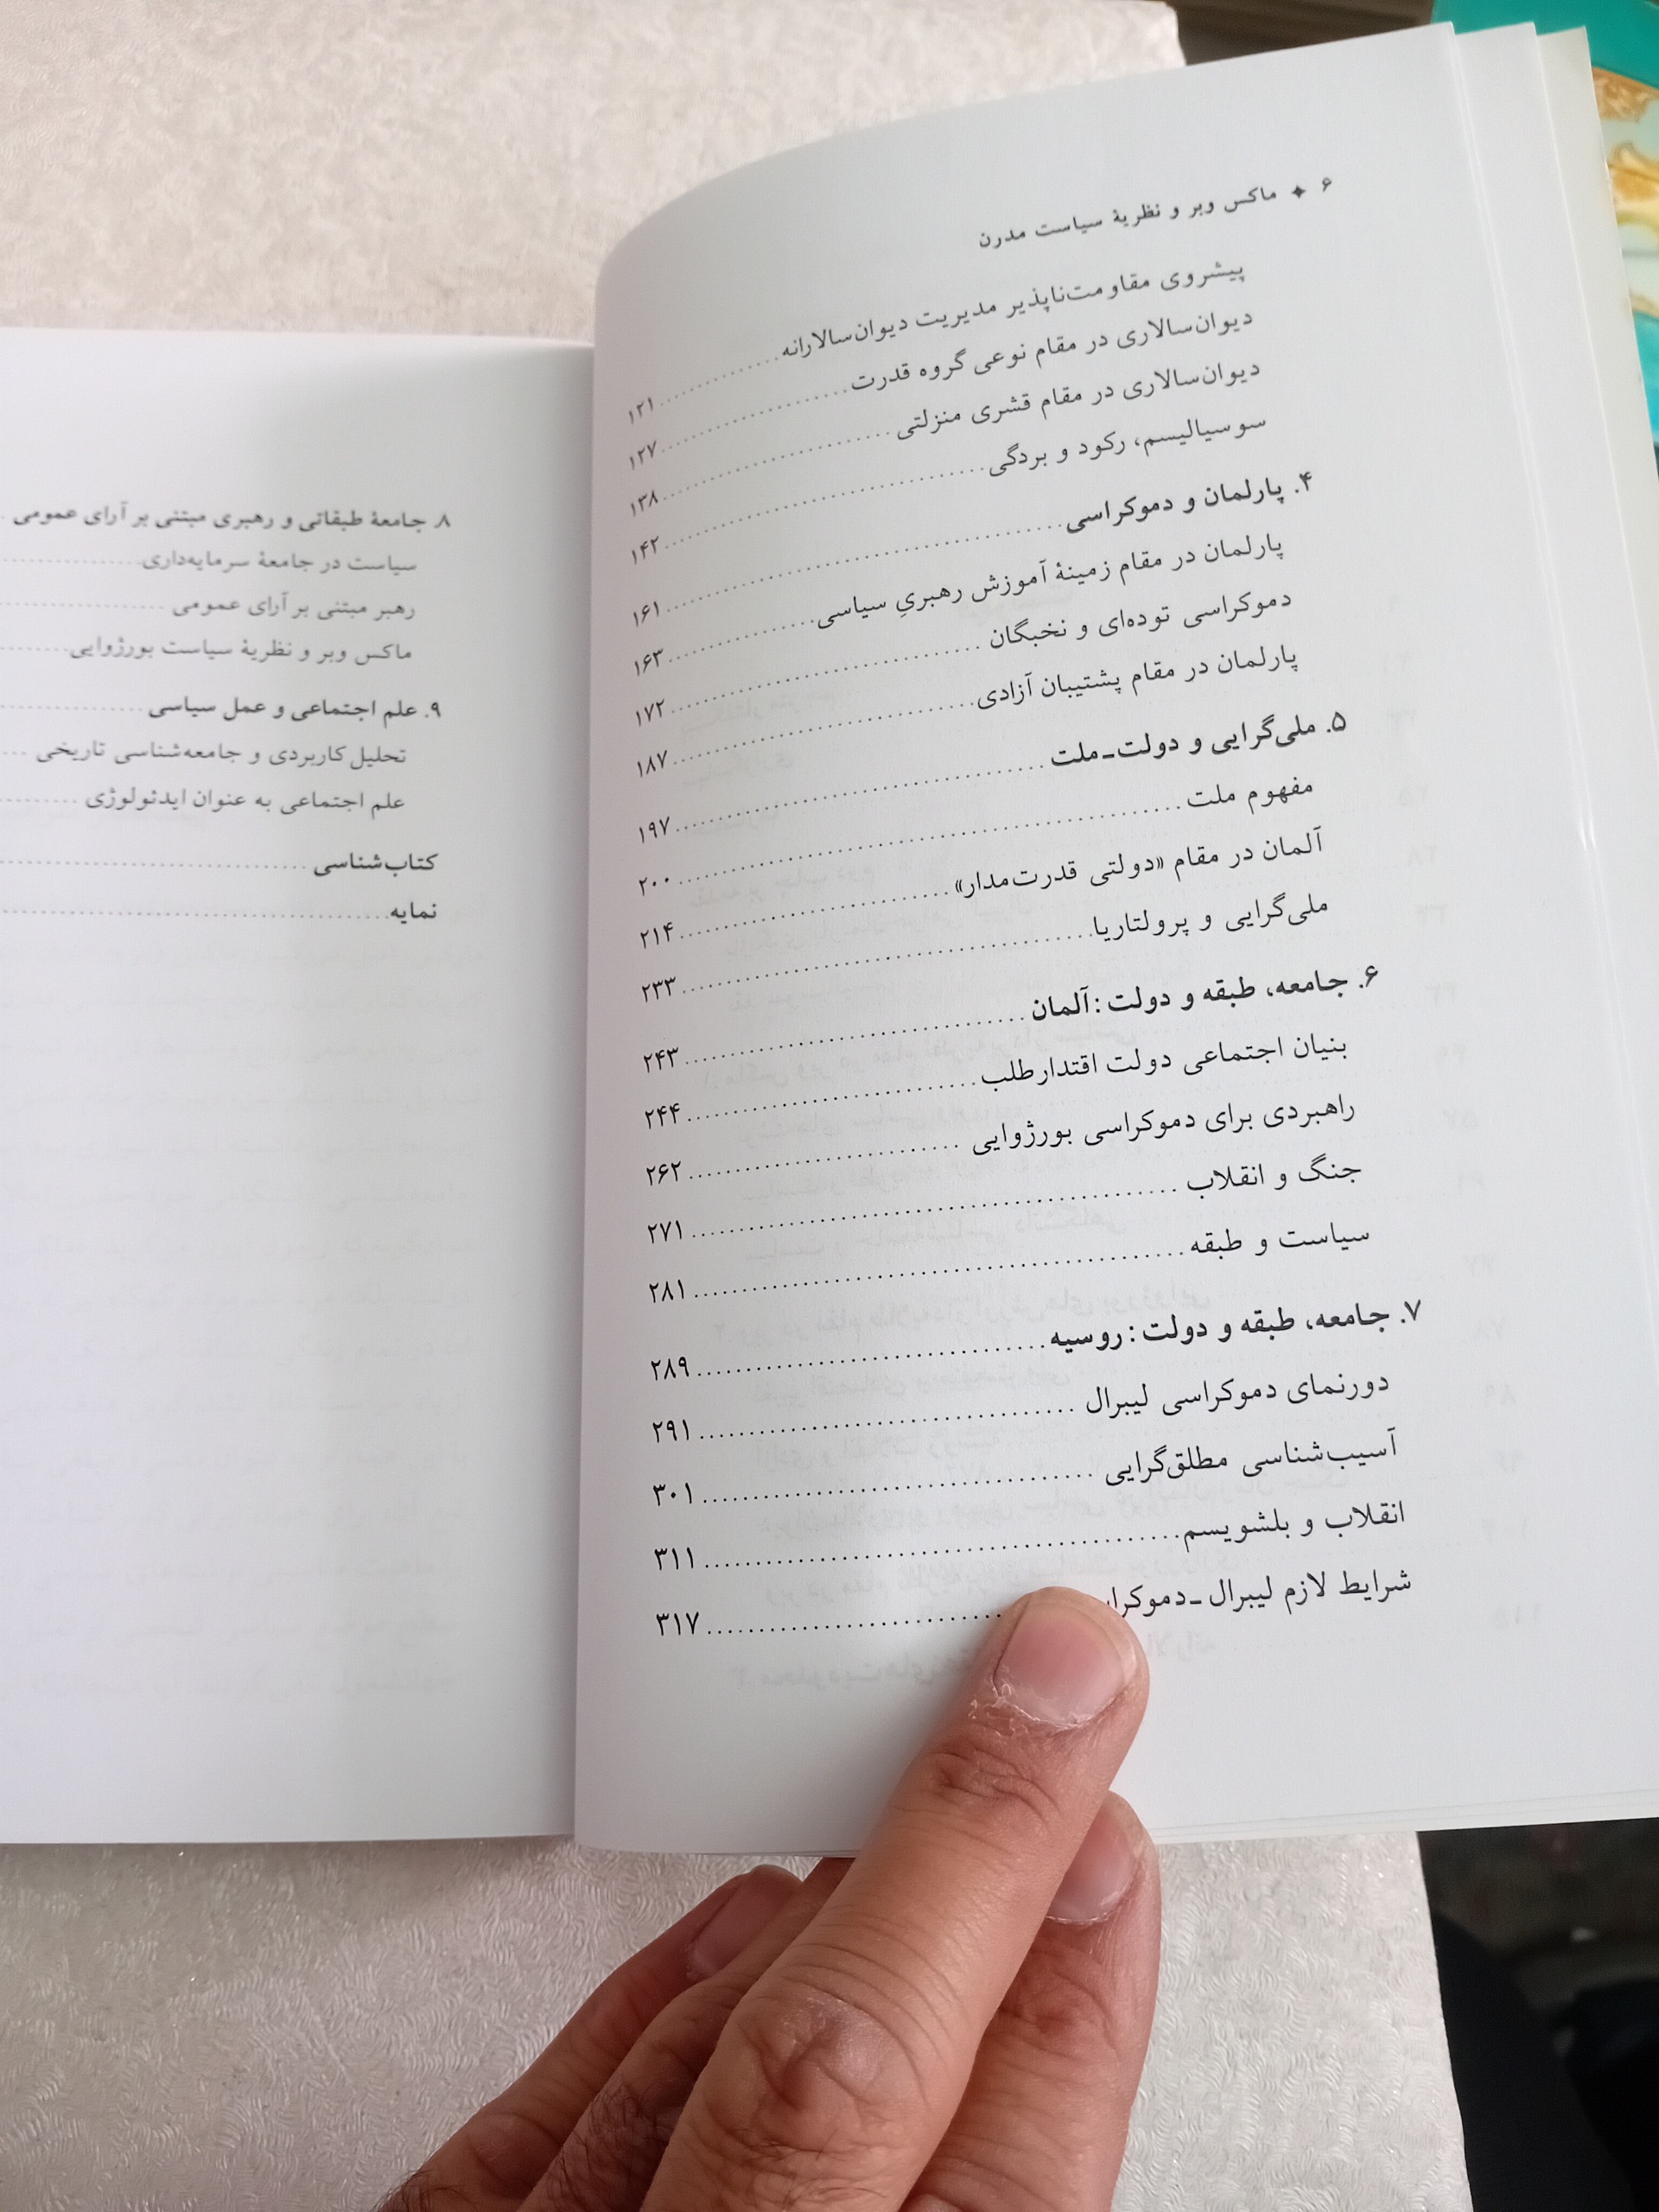 ۶ ✦ ماکس وبر و نظریهٔ سیاست مدرن
پیشروی مقاومت‌ناپذیر مدیریت دیوان‌سالارانه ........ ۱۲۱
دیوان‌سالاری در مقام نوعی گروه قدرت ........ ۱۲۷
دیوان‌سالاری در مقام قشری منزلتی ........ ۱۳۸
سوسیالیسم، رکود و بردگی ........ ۱۴۲
۴. پارلمان و دموکراسی ........ ۱۶۱
پارلمان در مقام زمینهٔ آموزش رهبریِ سیاسی ........ ۱۶۳
دموکراسی توده‌ای و نخبگان ........ ۱۷۲
پارلمان در مقام پشتیبان آزادی ........ ۱۸۷
۵. ملی‌گرایی و دولت‌ـ‌ملت ........ ۱۹۷
مفهوم ملت ........ ۲۰۰
آلمان در مقام «دولتی قدرت‌مدار» ........ ۲۱۴
ملی‌گرایی و پرولتاریا ........ ۲۳۳
۶. جامعه، طبقه و دولت: آلمان ........ ۲۴۳
بنیان اجتماعی دولت اقتدارطلب ........ ۲۴۴
راهبردی برای دموکراسی بورژوایی ........ ۲۶۲
جنگ و انقلاب ........ ۲۷۱
سیاست و طبقه ........ ۲۸۱
۷. جامعه، طبقه و دولت: روسیه ........ ۲۸۹
دورنمای دموکراسی لیبرال ........ ۲۹۱
آسیب‌شناسی مطلق‌گرایی ........ ۳۰۱
انقلاب و بلشویسم ........ ۳۱۱
شرایط لازم لیبرال ـ ........ ۳۱۷
۸. جامعهٔ طبقاتی و رهبری مبتنی بر آرای عمومی
سیاست در جامعهٔ سرمایه‌داری ........
رهبر مبتنی بر آرای عمومی ........
ماکس وبر و نظریهٔ سیاست بورژوایی ........
۹. علم اجتماعی و عمل سیاسی ........
تحلیل کاربردی و جامعه‌شناسی تاریخی ........
علم اجتماعی به عنوان ایدئولوژی ........
کتاب‌شناسی ........
نمایه ........